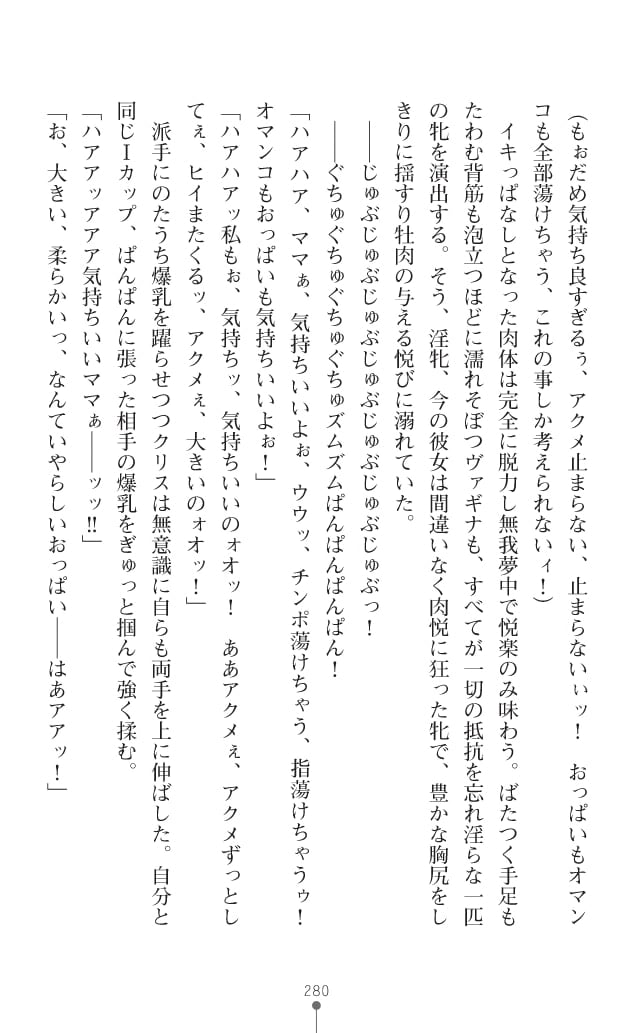 (もぉだめ気持ち良すぎるぅ、アクメ止まらない、止まらないぃッ!　おっぱいもオマン
コも全部蕩けちゃう、これの事しか考えられないィ!)
イキっぱなしとなった肉体は完全に脱力し無我夢中で悦楽のみ味わう。ばたつく手足も
たわむ背筋も泡立つほどに濡れそぼつヴァギナも、すべてが一切の抵抗を忘れ淫らな一匹
の牝を演出する。そう、淫牝、今の彼女は間違いなく肉悦に狂った牝で、豊かな胸尻をし
きりに揺すり牡肉の与える悦びに溺れていた。
――じゅぶじゅぶじゅぶじゅぶじゅぶっ!
――ぐちゅぐちゅぐちゅぐちゅズムズムぱんぱんぱんぱん!
「ハアハア、ママぁ、気持ちいいよぉ、ウウッ、チンポ蕩けちゃう、指蕩けちゃうゥ!
オマンコもおっぱいも気持ちいいよぉ!」
「ハアハアッ私もぉ、気持ちッ、気持ちいいのォオッ!　ああアクメぇ、アクメずっとし
てぇ、ヒイまたくるッ、アクメぇ、大きいのォオッ!」
派手にのたうち爆乳を躍らせつつクリスは無意識に自らも両手を上に伸ばした。自分と
同じＩカップ、ぱんぱんに張った相手の爆乳をぎゅっと掴んで強く揉む。
「ハアアッアアア気持ちいいママぁ――ッッ!!」
「お、大きい、柔らかいっ、なんていやらしいおっぱい――はあアアッ!」
280